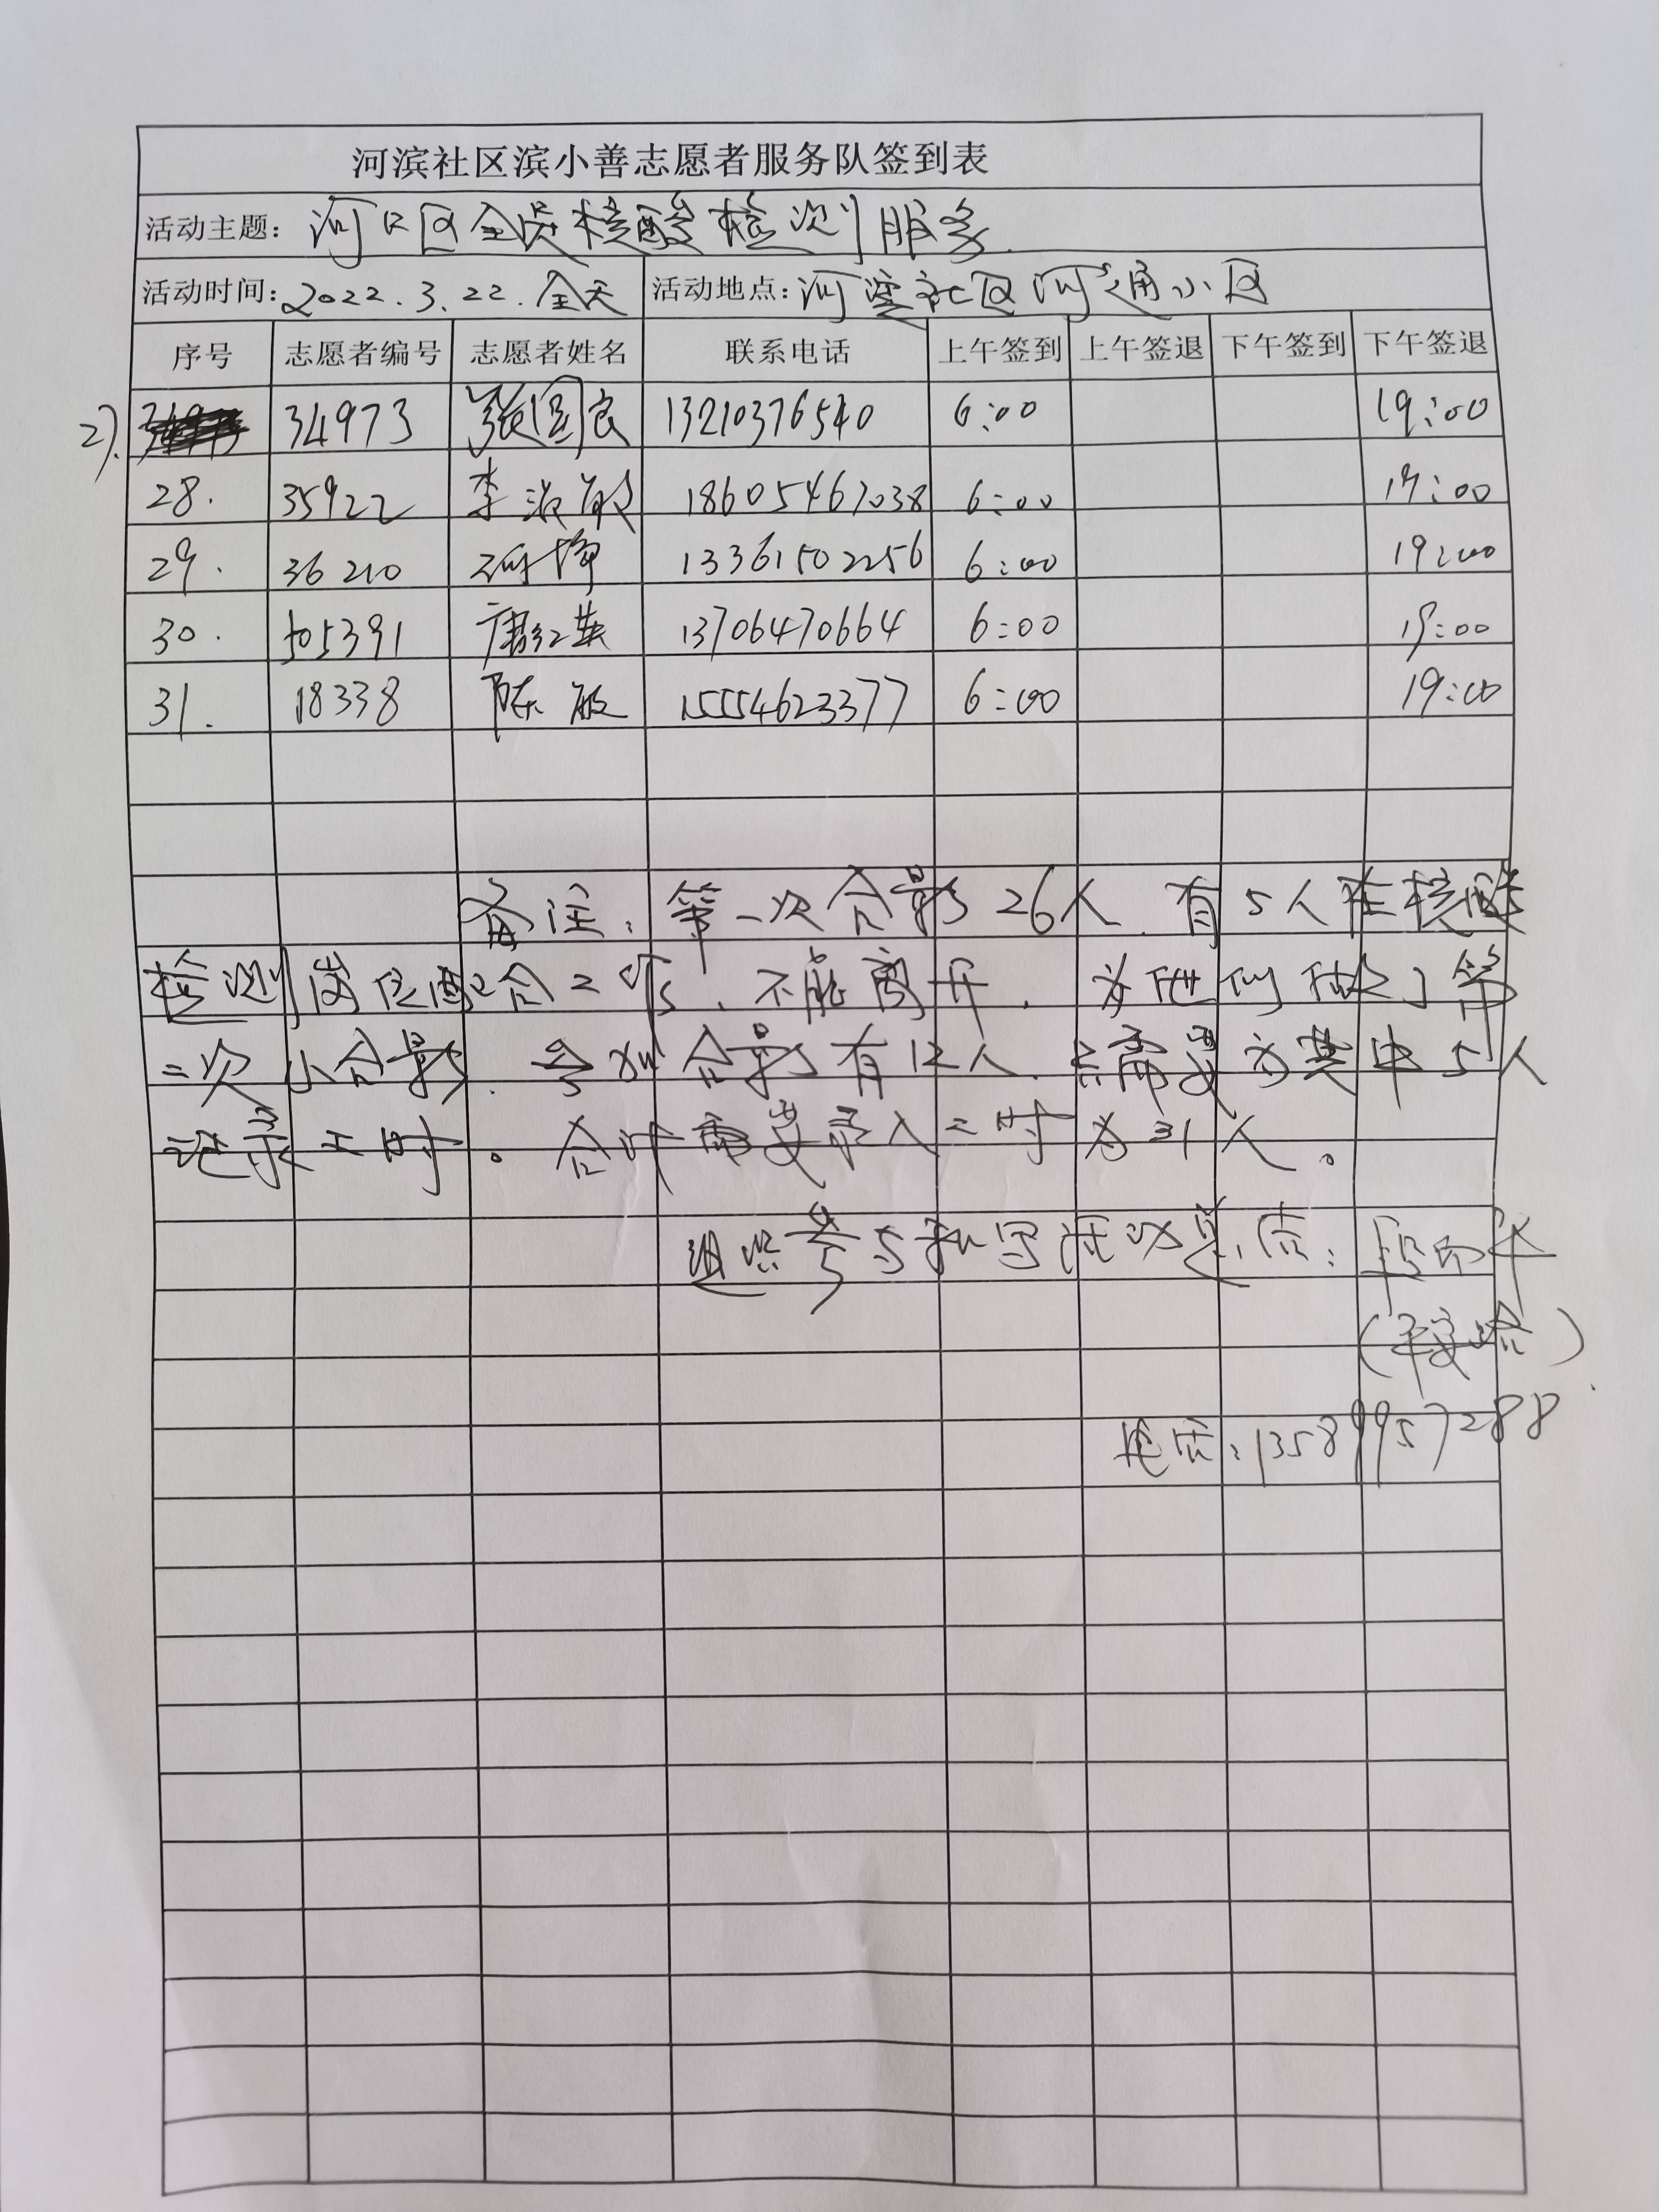 河滨社区滨小善志愿者服务队签到表
活动主题: 河口区全员核酸检测服务
活动时间: 2022.3.22.全天 活动地点: 河滨社区河通小区
序号 志愿者编号 志愿者姓名 联系电话 上午签到 上午签退 下午签到 下午签退
27. 34973 张国良 13210376540 6:00 19:00
28. 35922 李淑敏 18605467038 6:00 19:00
29. 36210 13361502256 6:00 19:00
30. 505391 唐红英 13706470664 6:00 19:00
31. 18338 陈敏 15554623377 6:00 19:00
备注: 第一次合影26人. 有5人在核酸
检测岗位配合工作, 不能离开. 为他们做了第
二次小合影. 参加合影有12人. 只需要为其中5人
记录工时。合计需要录入工时为31人。
组织参与和写证议总负:
电话: 13589957288